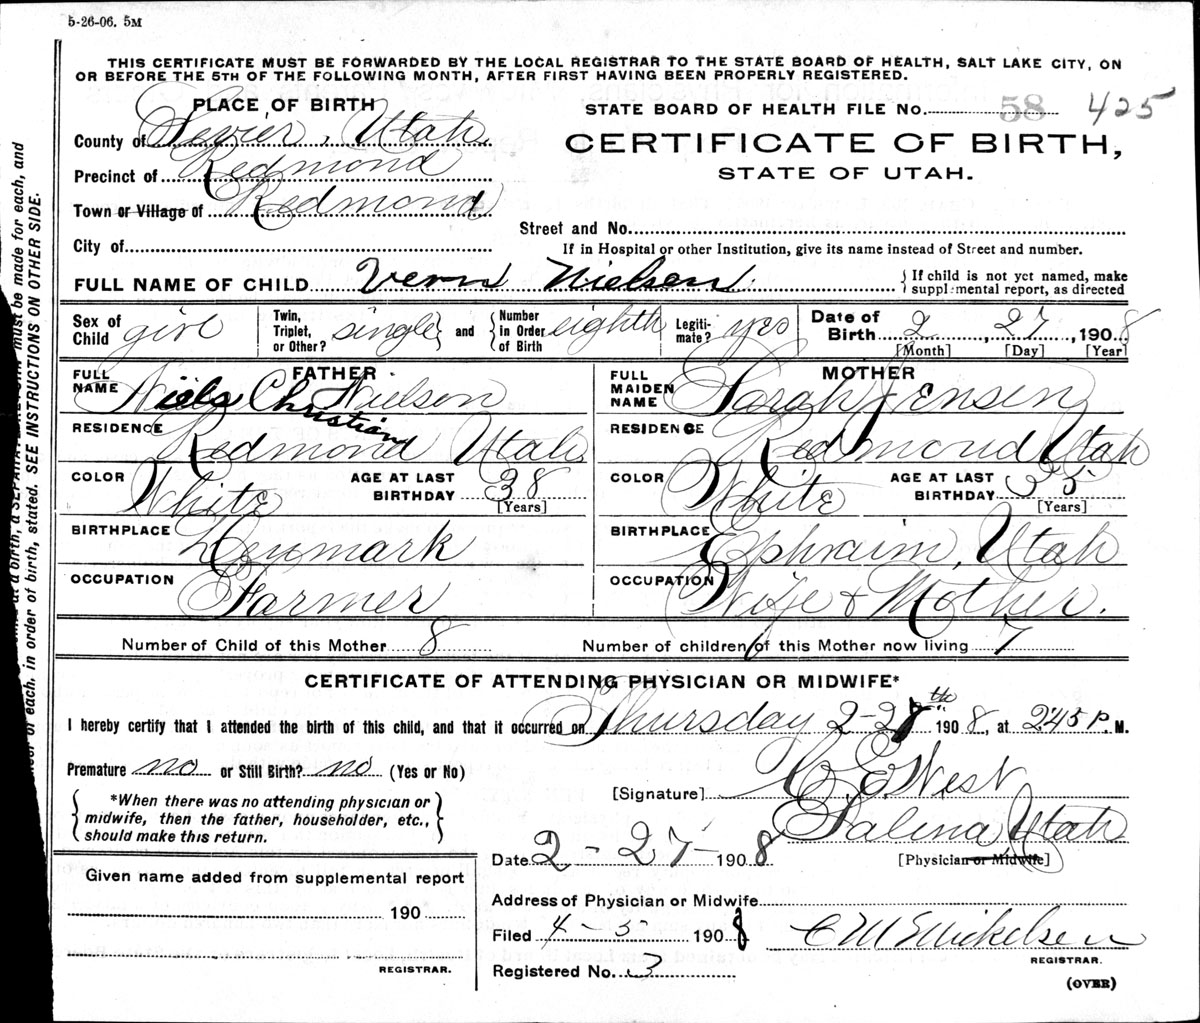 5-26-06. 5M
THIS CERTIFICATE MUST BE FORWARDED BY THE LOCAL REGISTRAR TO THE STATE BOARD OF HEALTH, SALT LAKE CITY, ON
OR BEFORE THE 5TH OF THE FOLLOWING MONTH, AFTER FIRST HAVING BEEN PROPERLY REGISTERED.
PLACE OF BIRTH
County of Sevier, Utah.
Precinct of Redmond
Town or Village of Redmond
City of
STATE BOARD OF HEALTH FILE No. 58 425
CERTIFICATE OF BIRTH,
STATE OF UTAH.
Street and No.
If in Hospital or other Institution, give its name instead of Street and number.
FULL NAME OF CHILD Vern Nielsen
If child is not yet named, make
supplemental report, as directed
Sex of Child girl Twin, Triplet, or Other? single and Number in Order of Birth eighth Legitimate? yes Date of Birth 2, 27, 1908
[Month] [Day] [Year]
FATHER
FULL NAME Niels Christian Nielson
RESIDENCE Redmond Utah
COLOR White AGE AT LAST BIRTHDAY 38
[Years]
BIRTHPLACE Denmark
OCCUPATION Farmer
MOTHER
FULL MAIDEN NAME Sarah Jensen
RESIDENCE Redmond Utah
COLOR White AGE AT LAST BIRTHDAY 35
[Years]
BIRTHPLACE Ephraim, Utah
OCCUPATION Wife & Mother.
Number of Child of this Mother 8 Number of children of this Mother now living 7
CERTIFICATE OF ATTENDING PHYSICIAN OR MIDWIFE*
I hereby certify that I attended the birth of this child, and that it occurred on Thursday 2-27th 1908, at 245 P. M.
Premature no or Still Birth? no (Yes or No)
[Signature] E West
Salina Utah
[Physician or Midwife]
*When there was no attending physician or
midwife, then the father, householder, etc.,
should make this return.
Date 2-27-1908
Given name added from supplemental report
190
REGISTRAR.
Address of Physician or Midwife
Filed 4-3 1908
Mickelsen
REGISTRAR.
Registered No. 3
(OVER)
must be made for each, and
of each, in order of birth, stated. SEE INSTRUCTIONS ON OTHER SIDE.